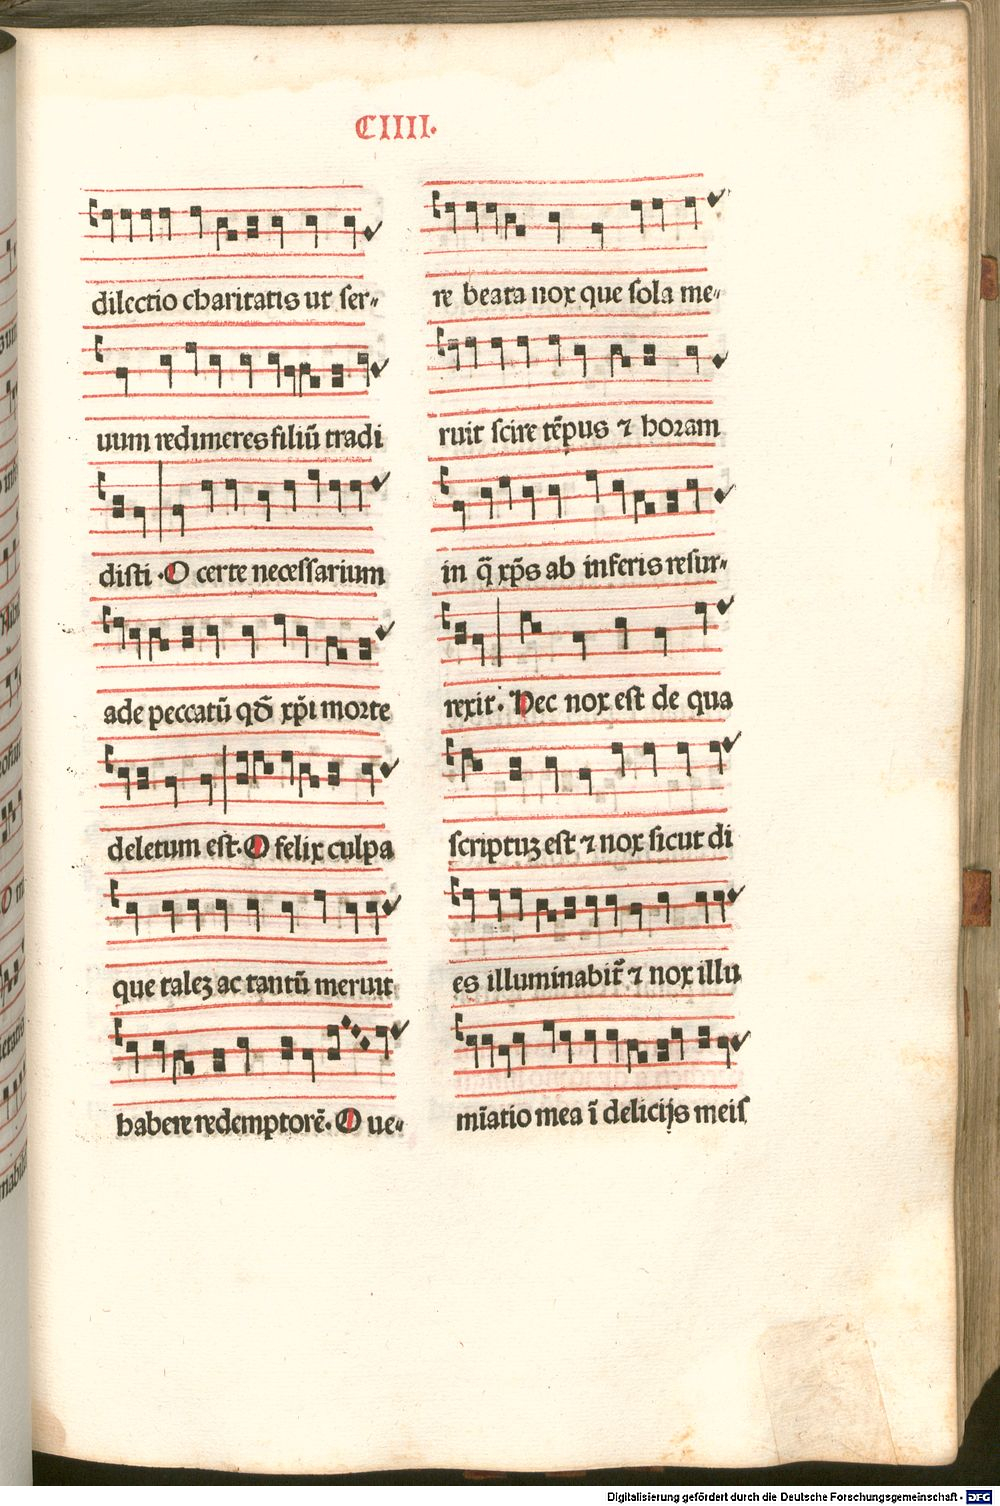 CIIII.
dilectio charitatis ut ser⸗
uum redimeres filiū tradi
disti. O certe necessarium
ade peccatū qđ xp̄i morte
deletum est. O felix culpa
que taleʒ ac tantū meruit
habere redemptorē. O ue⸗
re beata nox que sola me⸗
ruit scire tēpus ⁊ horam
in q̄ xp̄s ab inferis resur⸗
rexit. Hec nox est de qua
scriptuʒ est ⁊ nox sicut di
es illuminabit̄ ⁊ nox illu
mīatio mea ī delicijs meis
Digitalisierung gefördert durch die Deutsche Forschungsgemeinschaft - DFG